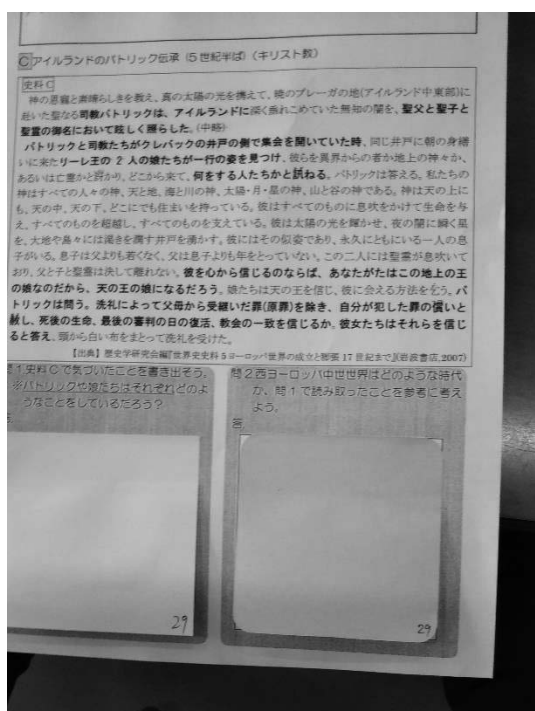 Ⓒアイルランドのパトリック伝承(5世紀半ば)(キリスト教)
史料C
神の恩寵と素晴らしきを教え、真の太陽の光を携えて、暁のブレーガの地(アイルランド中東部)に
赴いた聖なる司教パトリックは、アイルランドに深く垂れこめていた無知の闇を、聖父と聖子と
聖霊の御名において眩しく照らした。(中略)
パトリックと司教たちがクレバックの井戸の側で集会を開いていた時、同じ井戸に朝の身繕
いに来たリーレ王の2人の娘たちが一行の姿を見つけ、彼らを異界からの者か地上の神々か、
あるいは亡霊かと訝かり、どこから来て、何をする人たちかと訊ねる。パトリックは答える。私たちの
神はすべての人々の神、天と地、海と川の神、太陽・月・星の神、山と谷の神である。神は天の上に
も、天の中、天の下、どこにでも住まいを持っている。彼はすべてのものに息吹をかけて生命を与
え、すべてのものを超越し、すべてのものを支えている。彼は太陽の光を輝かせ、夜の闇に瞬く星
を、大地や島々には渇きを潤す井戸を湧かす。彼にはその似姿であり、永久にともにいる一人の息
子がいる。息子は父よりも若くなく、父は息子よりも年をとっていない。この二人には聖霊が息吹いて
おり、父と子と聖霊は決して離れない。彼を心から信じるのならば、あなたがたはこの地上の王
の娘なのだから、天の王の娘になるだろう。娘たちは天の王を信じ、彼に会える方法を乞う。パ
トリックは問う。洗礼によって父母から受継いだ罪(原罪)を除き、自分が犯した罪の償いと
赦し、死後の生命、最後の審判の日の復活、教会の一致を信じるか。彼女たちはそれらを信じ
ると答え、頭から白い布をまとって洗礼を受けた。
【出典】歴史学研究会編『世界史史料5ヨーロッパ世界の成立と膨張17世紀まで』(岩波書店,2007)
問1史料Cで気づいたことを書き出そう。
※パトリックや娘たちはそれぞれどのよ
うなことをしているだろう?
29
問2西ヨーロッパ中世世界はどのような時代
か、問1で読み取ったことを参考に考え
よう。
答
29